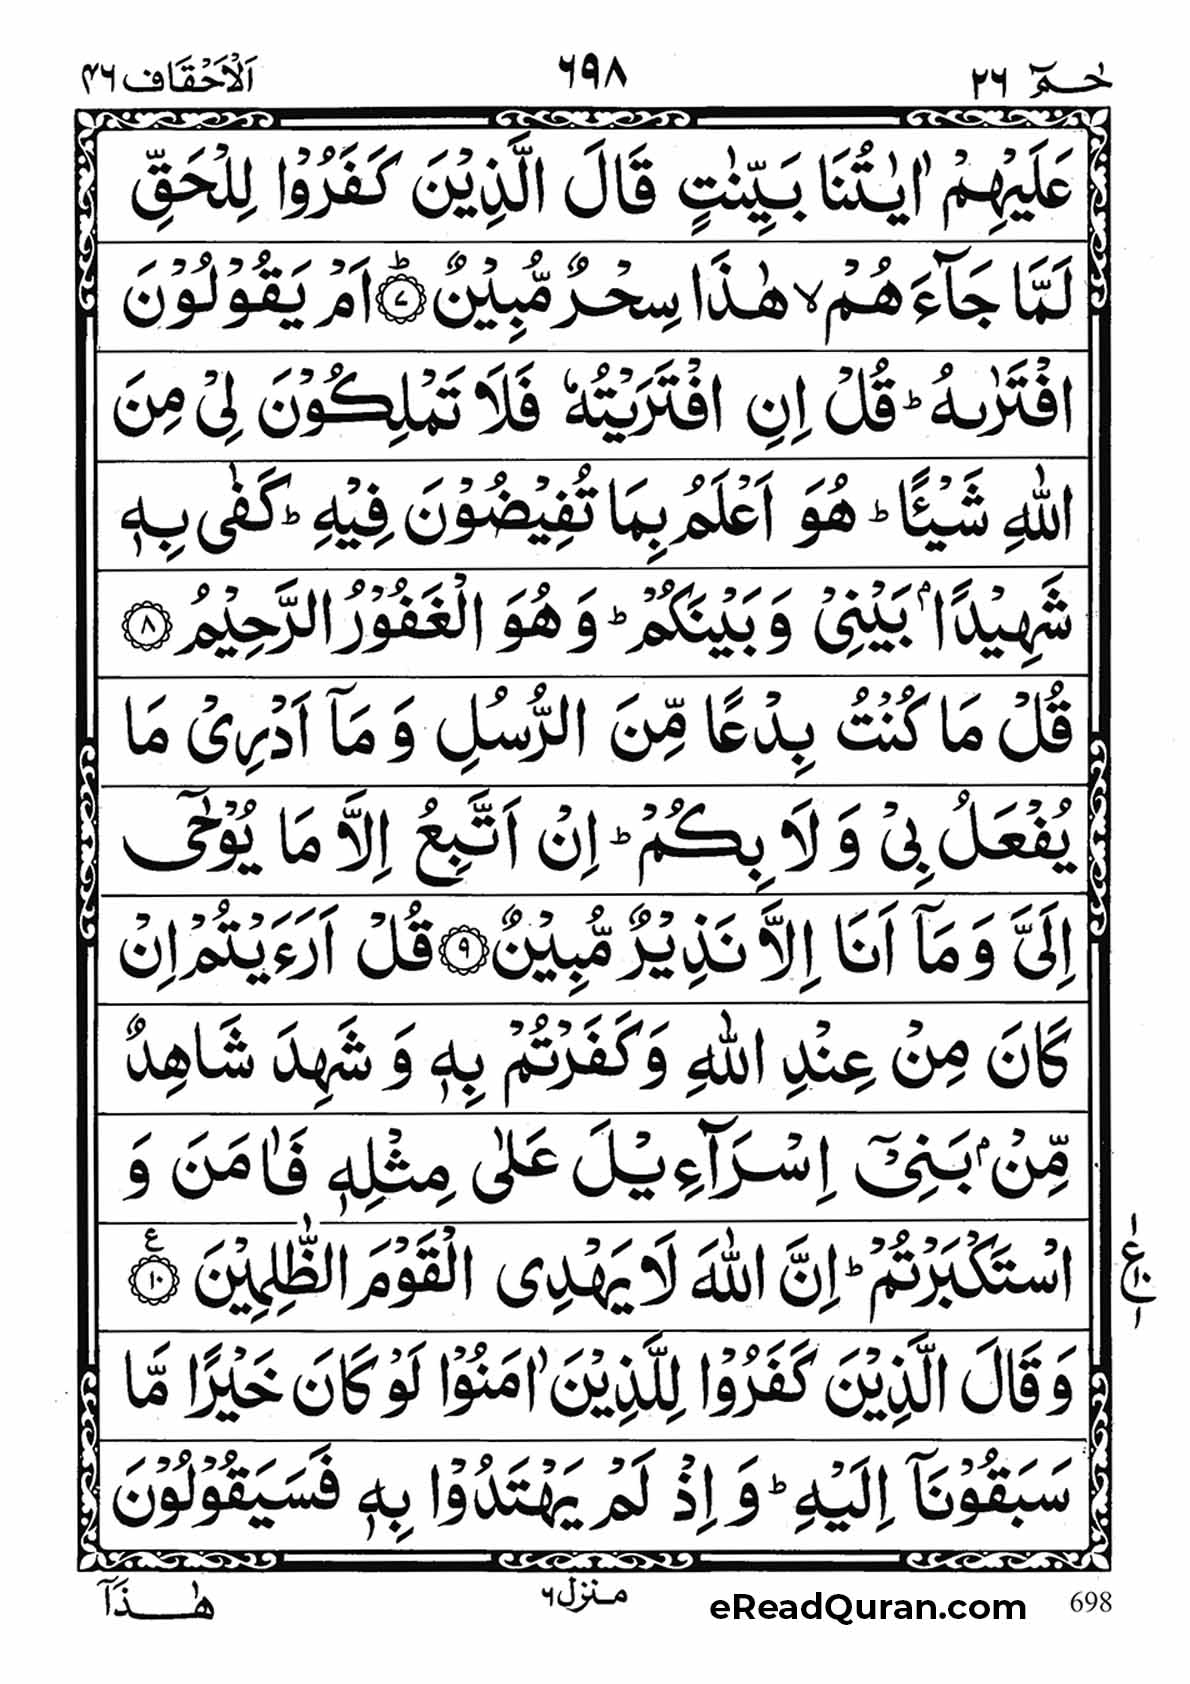 حٰـمٓ ٢٦ ٦٩٨ اَلْاَحْقَاف ٤٦
عَلَيْهِمْ اٰيٰتُنَا بَيِّنٰتٍ قَالَ الَّذِيْنَ كَفَرُوْا لِلْحَقِّ
لَمَّا جَآءَ هُمْ ۙ هٰذَا سِحْرٌ مُّبِيْنٌ ؕ﴿٧﴾ اَمْ يَقُوْلُوْنَ
افْتَرٰىهُ ؕ قُلْ اِنِ افْتَرَيْتُهٗ فَلَا تَمْلِكُوْنَ لِيْ مِنَ
اللّٰهِ شَيْـًٔا ؕ هُوَ اَعْلَمُ بِمَا تُفِيْضُوْنَ فِيْهِ ؕ كَفٰى بِهٖ
شَهِيْدًاۢ بَيْنِيْ وَ بَيْنَكُمْ ؕ وَ هُوَ الْغَفُوْرُ الرَّحِيْمُ ﴿٨﴾
قُلْ مَا كُنْتُ بِدْعًا مِّنَ الرُّسُلِ وَ مَآ اَدْرِيْ مَا
يُفْعَلُ بِيْ وَ لَا بِكُمْ ؕ اِنْ اَتَّبِعُ اِلَّا مَا يُوْحٰٓى
اِلَيَّ وَ مَآ اَنَا اِلَّا نَذِيْرٌ مُّبِيْنٌ ﴿٩﴾ قُلْ اَرَءَيْتُمْ اِنْ
كَانَ مِنْ عِنْدِ اللّٰهِ وَ كَفَرْتُمْ بِهٖ وَ شَهِدَ شَاهِدٌ
مِّنْۢ بَنِيْٓ اِسْرَآءِيْلَ عَلٰى مِثْلِهٖ فَاٰمَنَ وَ
اسْتَكْبَرْتُمْ ؕ اِنَّ اللّٰهَ لَا يَهْدِى الْقَوْمَ الظّٰلِمِيْنَ ﴿١٠﴾ ع
١ ع ١٠ ١
وَ قَالَ الَّذِيْنَ كَفَرُوْا لِلَّذِيْنَ اٰمَنُوْا لَوْ كَانَ خَيْرًا مَّا
سَبَقُوْنَآ اِلَيْهِ ؕ وَ اِذْ لَمْ يَهْتَدُوْا بِهٖ فَسَيَقُوْلُوْنَ
منزل ٦ هٰـذَآ
eReadQuran.com 698